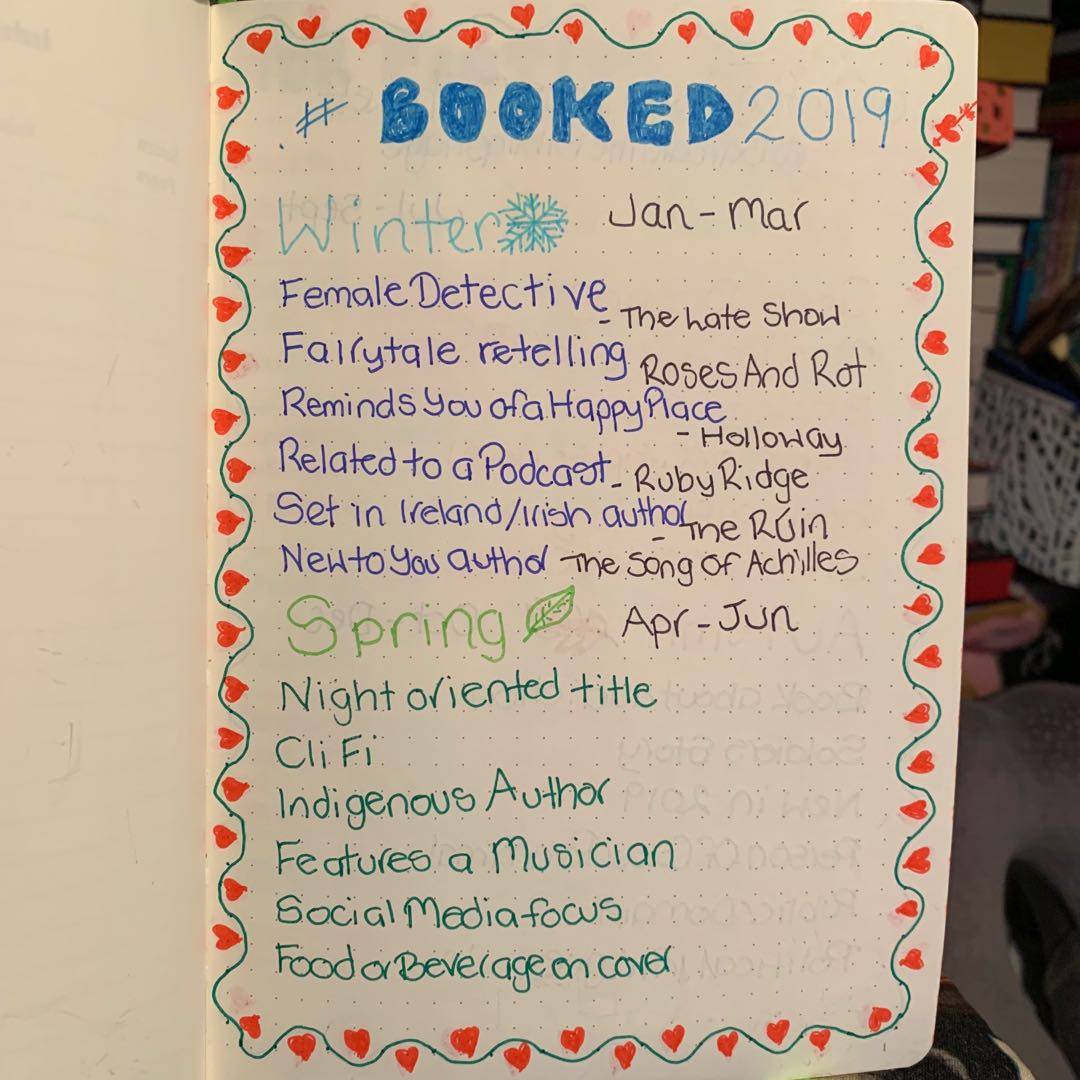 # BOOKED 2019
Winter Jan - Mar
Female Detective
- The Late Show
Fairytale retelling Roses And Rot
Reminds You of a Happy Place
- Holloway
Related to a Podcast - Ruby Ridge
Set in Ireland/Irish author
- The Rúin
New to You author The Song Of Achilles
Spring Apr - Jun
Night oriented title
Cli Fi
Indigenous Author
Features a Musician
Social Media focus
Food or Beverage on cover
1